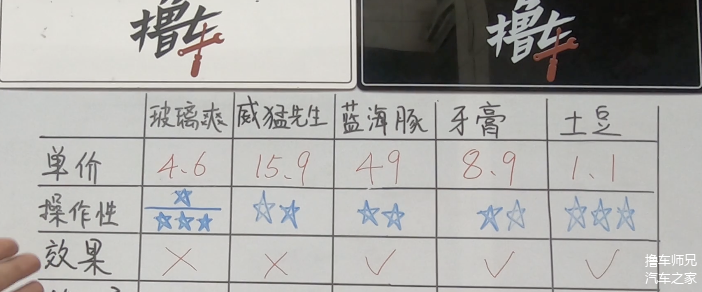 撸车
撸车
玻璃爽 威猛先生 蓝海豚 牙膏 土豆
单价 4.6 15.9 49 8.9 1.1
操作性
效果 × × ✓ ✓ ✓
撸车师兄
汽车之家